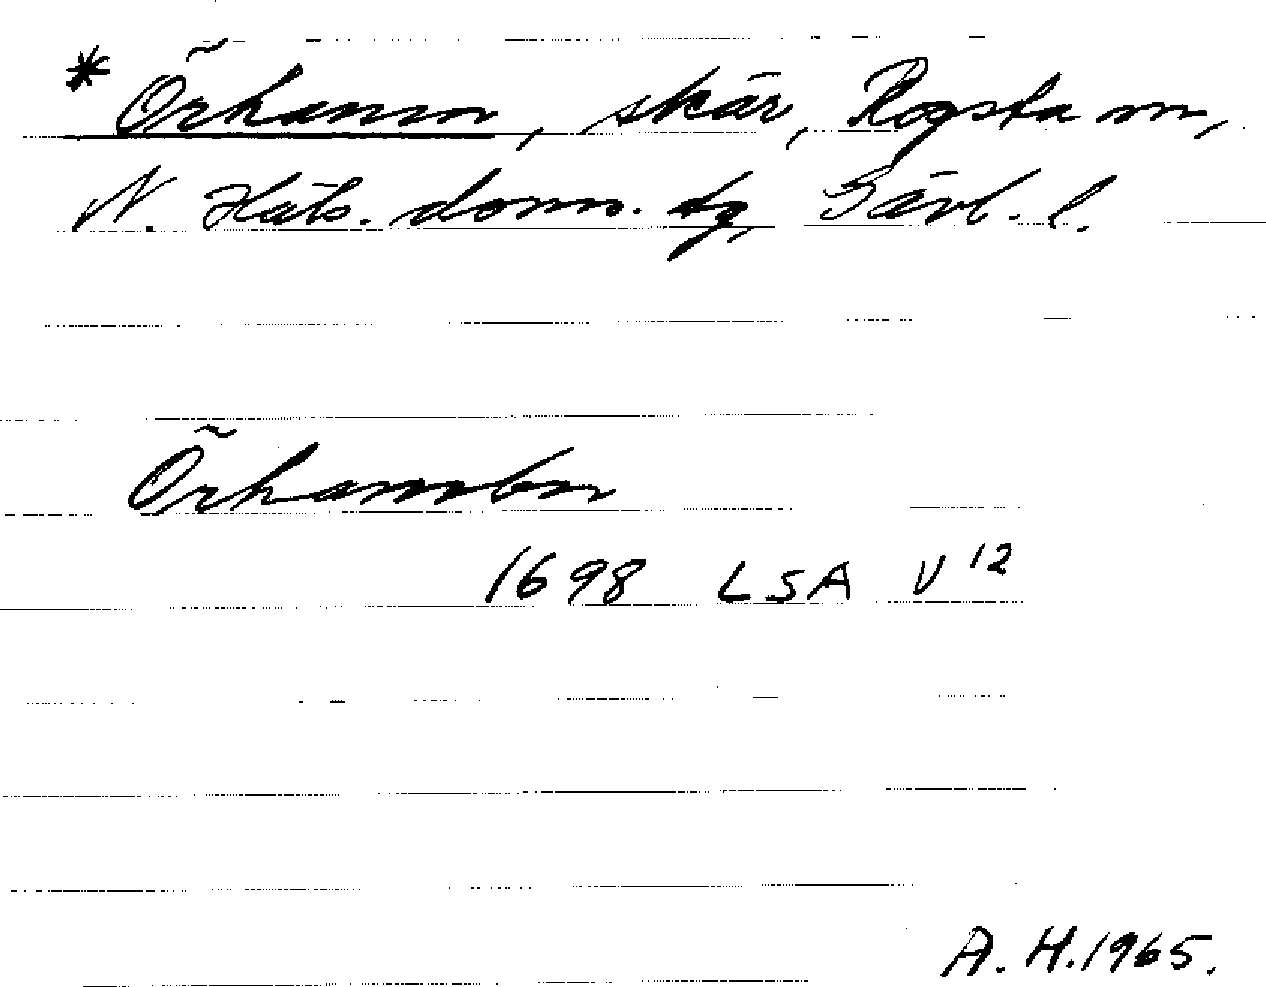 * Örhamn, skär, Rogsta sn,
N. Häls. doms. tg, Gävl. l.
Örhambn
1698 LSA V 12
A. H. 1965.